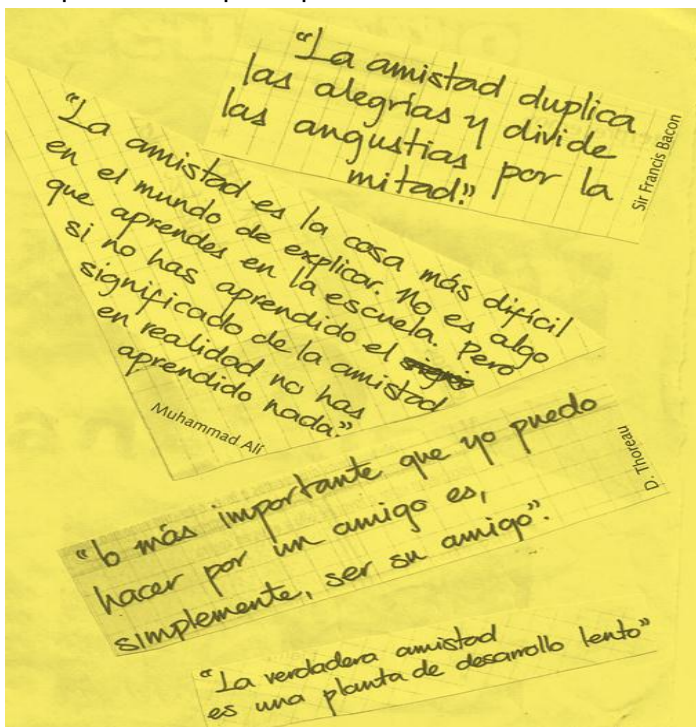 "La amistad duplica
las alegrías y divide
las angustias por la
mitad."
Sir Francis Bacon
"La amistad es la cosa más difícil
en el mundo de explicar. No es algo
que aprendes en la escuela. Pero
si no has aprendido el
significado de la amistad
en realidad no has
aprendido nada."
Muhammad Alí
"lo más importante que yo puedo
hacer por un amigo es,
simplemente, ser su amigo".
D. Thoreau
"La verdadera amistad
es una planta de desarrollo lento"